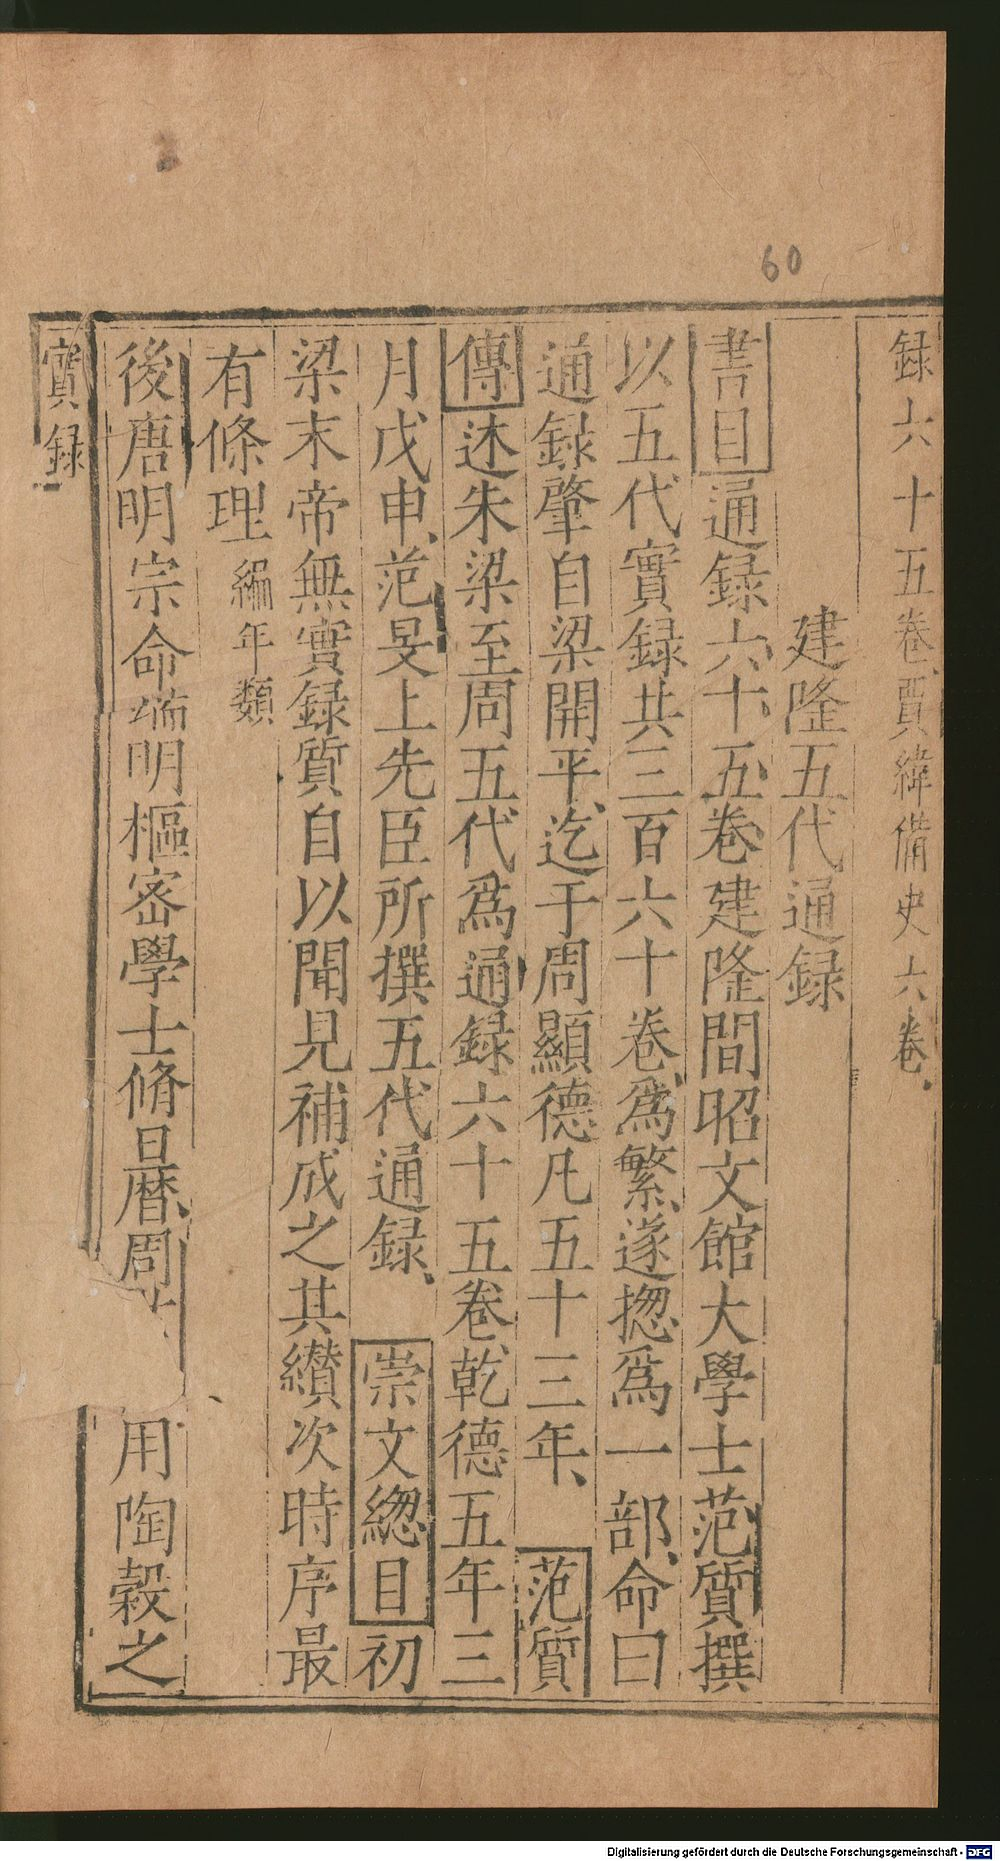 錄六十五卷賈緯備史六卷
建隆五代通錄
書目通錄六十五卷建隆間昭文館大學士范質撰
以五代實錄共三百六十卷爲繁遂揔爲一部命曰
通錄肇自梁開平迄于周顯德凡五十三年 范質
傳述朱梁至周五代爲通錄六十五卷乾德五年三
月戊申范旻上先臣所撰五代通錄 崇文緫目初
梁末帝無實錄質自以聞見補成之其纉次時序最
有條理編年類
後唐明宗命端明樞密學士脩日曆周
用陶穀之
實錄
60
Digitalisierung gefördert durch die Deutsche Forschungsgemeinschaft - DFG